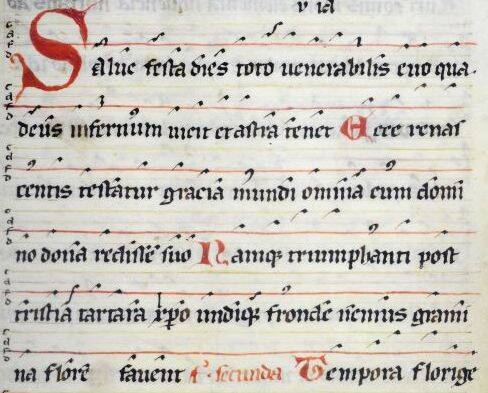 Salue festa dies toto uenerabilis euo qua
deus infernum uicit et astra tenet Ecce renas
centis testatur gracia mundi omnia cum domi
no dona redisse suo Namque triumphanti post
tristia tartara xpo undique fronde nemus grami
na flore fauent f. secunda Tempora florige